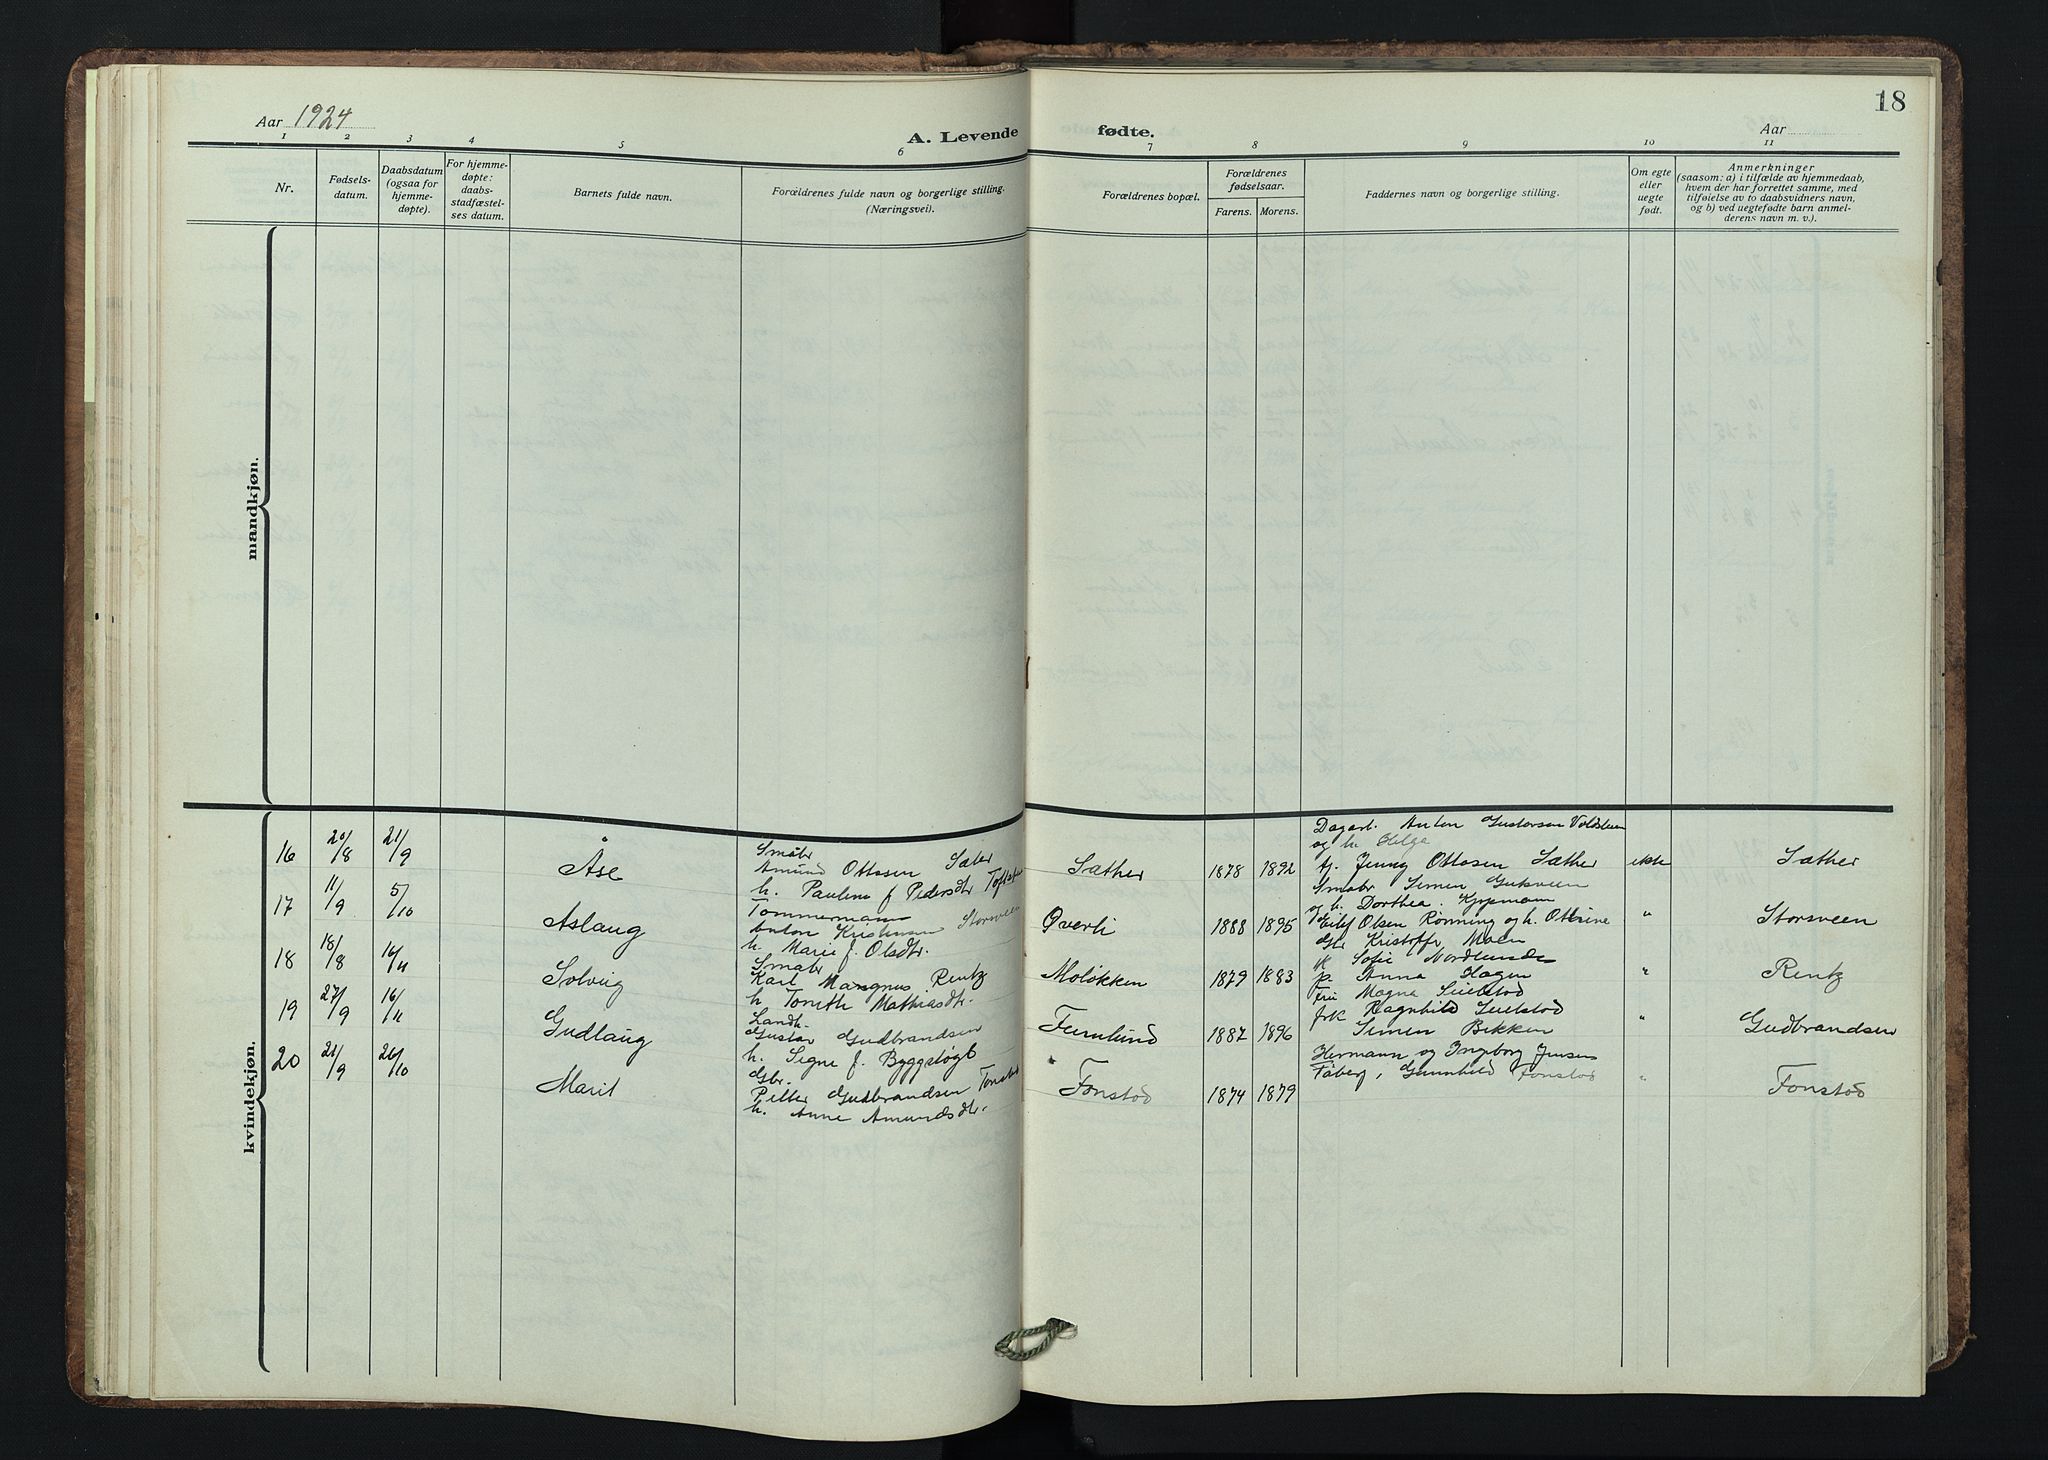 18
Aar 1924
A. Levende fødte.
Aar
1 2 3 4 5 6 7 8 9 10 11
Nr.
Fødsels-
datum.
Daabsdatum
(ogsaa for
hjemme-
døpte).
For hjemme-
døpte:
daabs-
stadfæstel-
ses datum.
Barnets fulde navn.
Forældrenes fulde navn og borgerlige stilling.
(Næringsvei).
Forældrenes bopæl.
Forældrenes
fødselsaar.
Farens. Morens.
Faddernes navn og borgerlige stilling.
Om egte
eller
uegte
født.
Anmerkninger
(saasom: a) i tilfælde av hjemmedaab,
hvem der har forrettet samme, med
tilføielse av to daabsvidners navn,
og b) ved uegtefødte barn anmel-
derens navn m. v.).
mandkjøn.
kvindekjøn.
16 20/8 21/9
Åse
Småbr
Amund Ottosen Sæter
h. Pauline f. Pedersdtr
Sæther
1878 1892
Dagarb. Anton Gustavsen
og h. Helga
tj. Jenny Ottosen Sæther
ekte
Sæther
17 11/9 5/10
Aslaug
Tømmermann
Anton Kristiansen Storsveen
h. Marie f. Olsdtr.
Øverli
1888 1895
Småbr Simen
og h. Dorthea
Eilef Olsen Rønning og h. Ottrine
"
Storsveen
18 18/8 16/11
Solveig
Småbr
Karl Mangnus Rentz
h. Mathiasdtr.
Moløkken
1879 1883
Gbr Kristoffer Moen
Sofie
p. Anna Hagen
"
Rentz
19 27/9 16/11
Gudlaug
Landh.
Gustav Gudbrandsen
h. Signe f.
Furulund
1887 1896
Fru Magna Seielstad
frk Ragnhild Seielstad
Simen Bekken
"
Gudbrandsen
20 21/9 26/10
Marit
Gbr.
Petter Gudbrandsen Fonstad
h. Anne Amundsdtr.
Fonstad
1874 1879
Hermann og Ingeborg Jensen
Fåberg, Gunnhild Fonstad
"
Fonstad